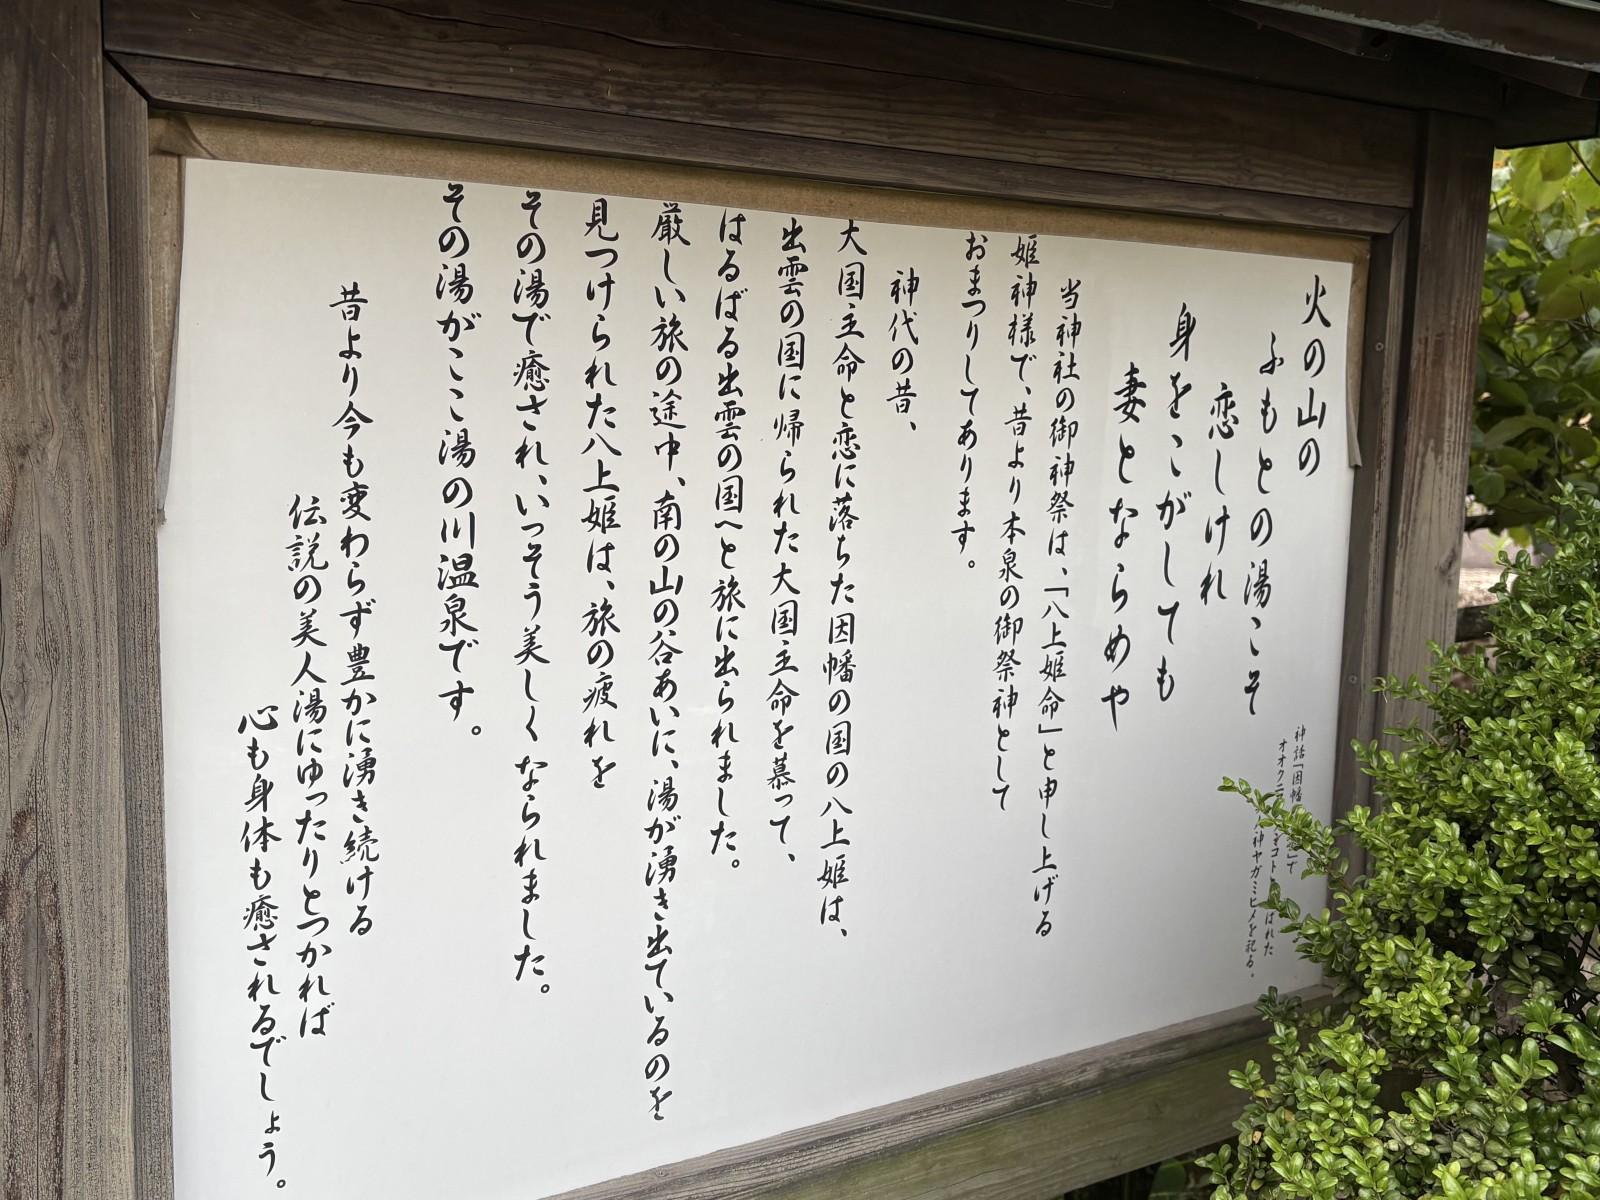 火の山の
ふもとの湯こそ
恋しけれ
身をこがしても
妻とならめや
神話「因幡
オオクニ
神ヤガミヒメを祀る。
当神社の御神祭は、「八上姫命」と申し上げる
姫神様で、昔より本泉の御祭神として
おまつりしてあります。
神代の昔、
大国主命と恋に落ちた因幡の国の八上姫は、
出雲の国に帰られた大国主命を慕って、
はるばる出雲の国へと旅に出られました。
厳しい旅の途中、南の山の谷あいに、湯が湧き出ているのを
見つけられた八上姫は、旅の疲れを
その湯で癒され、いっそう美しくなられました。
その湯がここ湯の川温泉です。
昔より今も変わらず豊かに湧き続ける
伝説の美人湯にゆったりとつかれば
心も身体も癒されるでしょう。